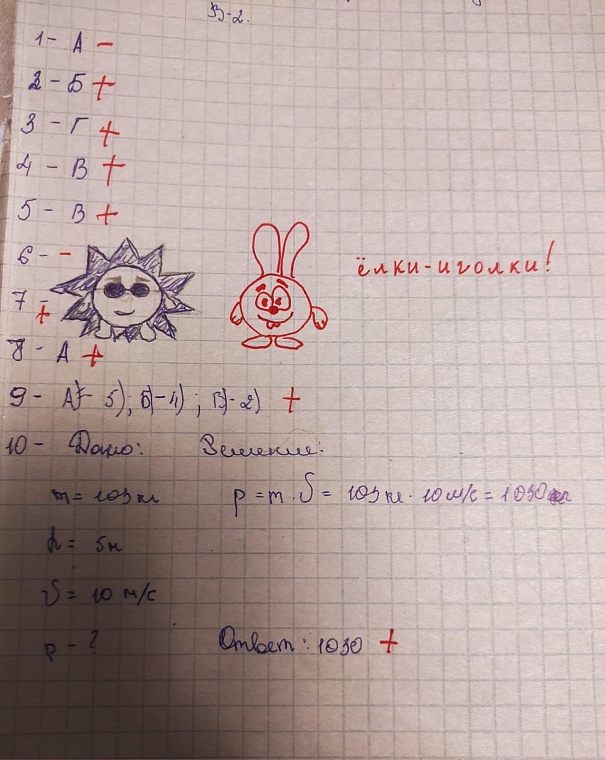 В-2.
1 - А -
2 - Б +
3 - Г +
4 - В +
5 - В +
6 - -
ёлки-иголки!
7 - +
8 - А +
9 - А) - 5); Б) - 4); В) - 2) +
10 - Дано: Решение:
m = 103 кг p = m · υ = 103 кг · 10 м/с = 1030
h = 5 м
υ = 10 м/с
p - ? Ответ: 1030 +